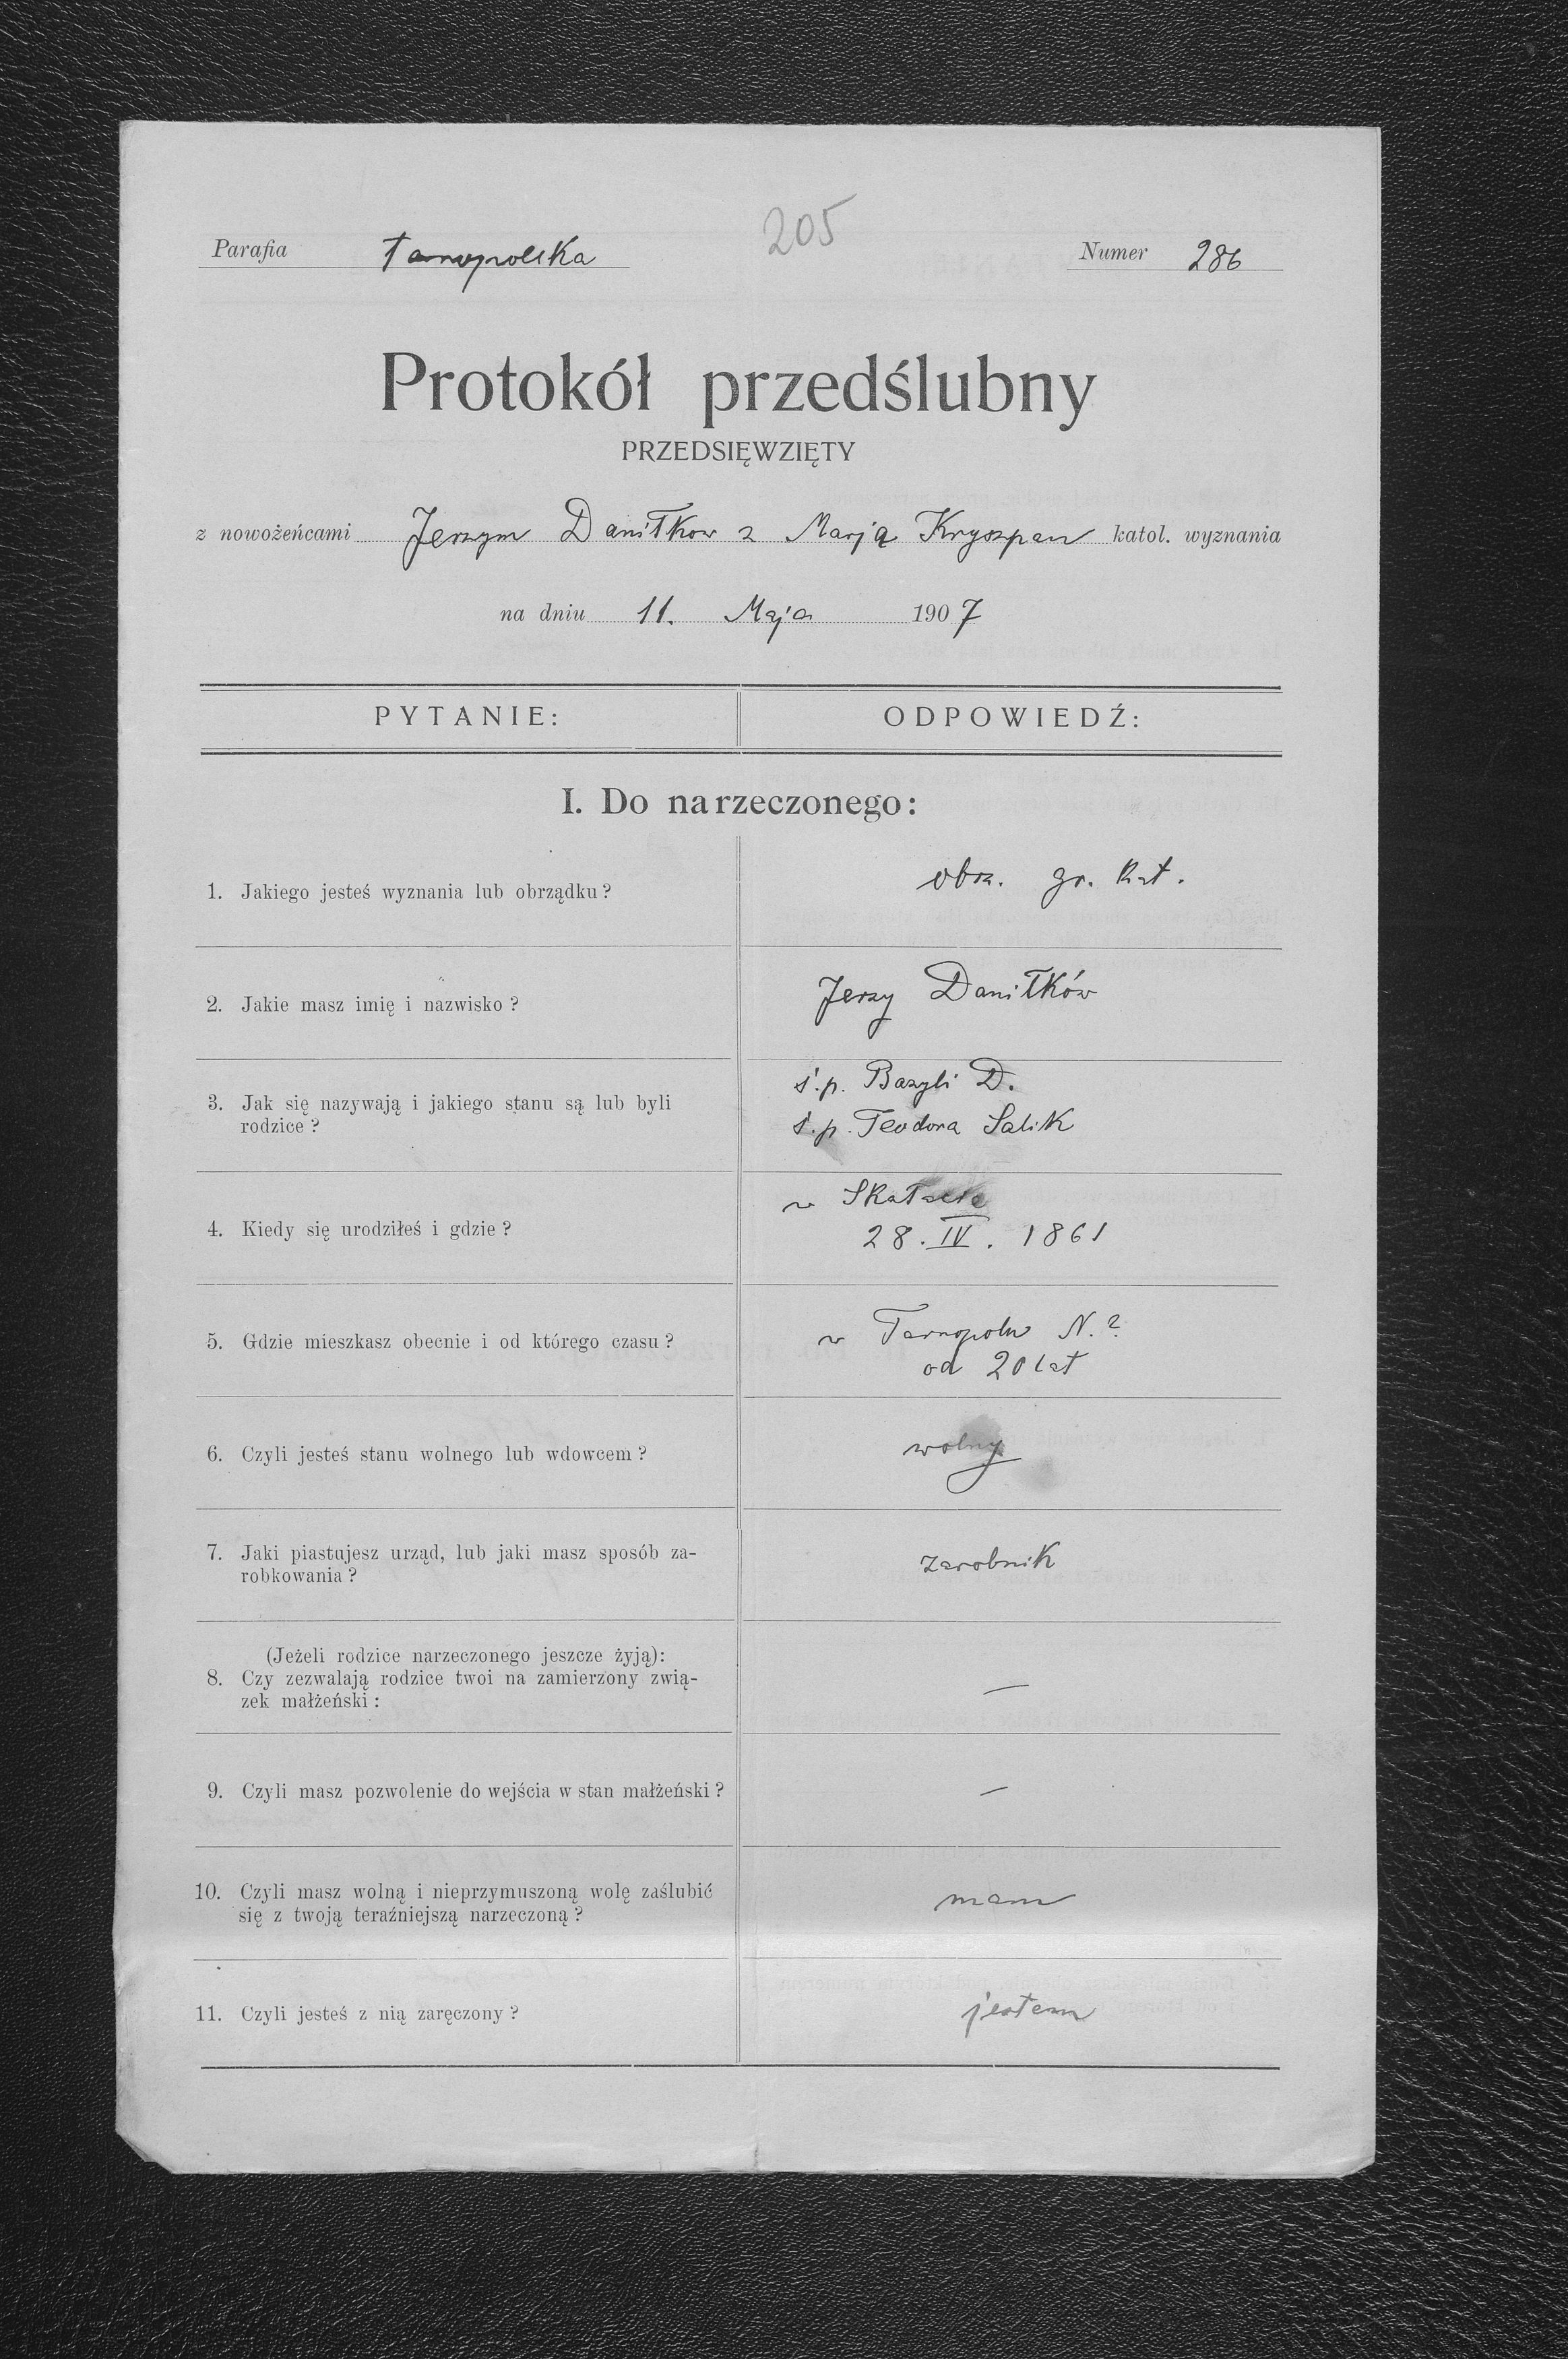 205
Parafia Tarnopolska Numer 286
Protokół przedślubny
PRZEDSIĘWZIĘTY
z nowożeńcami Jerzym Daniłkow z Marją Kryszpan katol. wyznania
na dniu 11. Maja 1907
PYTANIE: ODPOWIEDŹ:
I. Do narzeczonego:
1. Jakiego jesteś wyznania lub obrządku? obrz. gr. kat.
2. Jakie masz imię i nazwisko? Jerzy Daniłków
3. Jak się nazywają i jakiego stanu są lub byli
rodzice?
ś.p. Bazyli D.
ś.p. Teodora Salik
4. Kiedy się urodziłeś i gdzie?
w Skałacie
28. IV. 1861
5. Gdzie mieszkasz obecnie i od którego czasu?
w Tarnopolu N.?
od 20 lat
6. Czyli jesteś stanu wolnego lub wdowcem? wolny
7. Jaki piastujesz urząd, lub jaki masz sposób za-
robkowania?
zarobnik
(Jeżeli rodzice narzeczonego jeszcze żyją):
8. Czy zezwalają rodzice twoi na zamierzony zwią-
zek małżeński:
—
9. Czyli masz pozwolenie do wejścia w stan małżeński? —
10. Czyli masz wolną i nieprzymuszoną wolę zaślubić
się z twoją teraźniejszą narzeczoną?
mam
11. Czyli jesteś z nią zaręczony? jestem